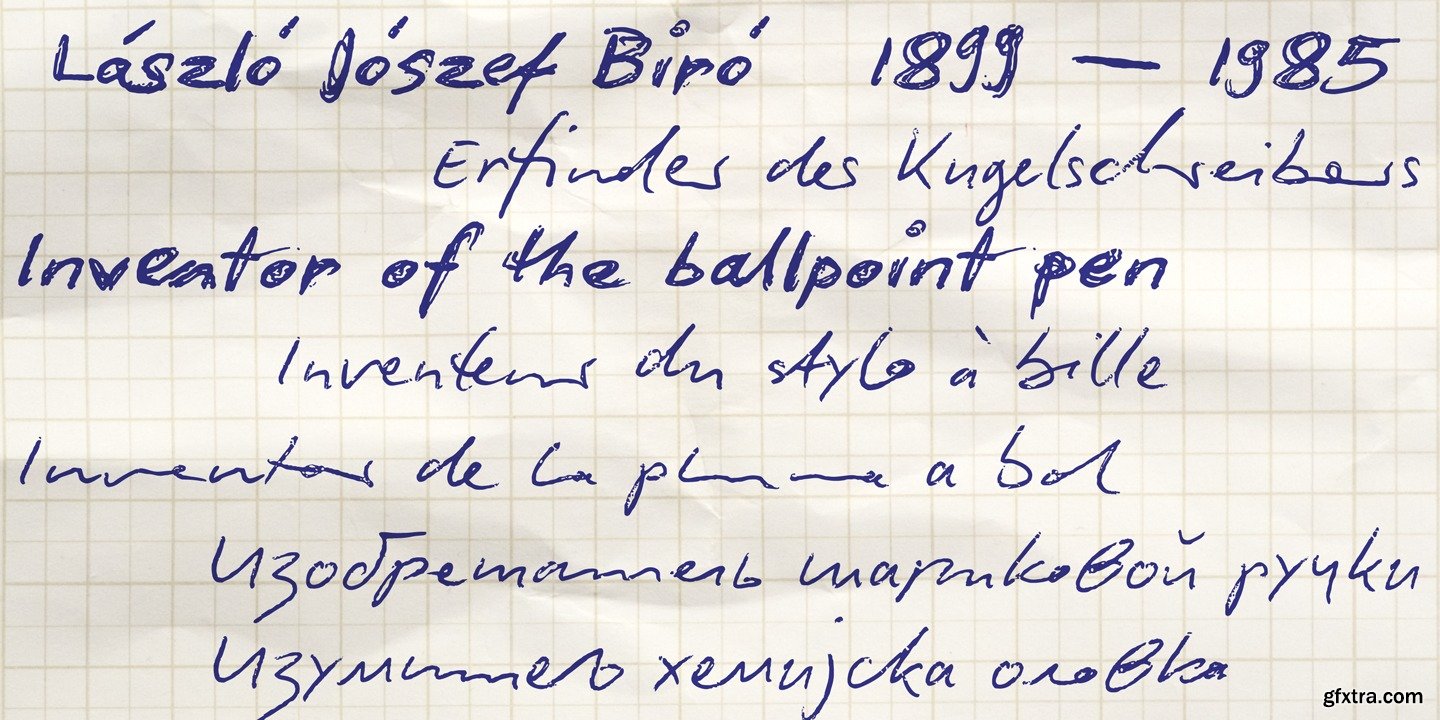 László József Bíró 1899 — 1985
Erfinder des Kugelschreibers
Inventor of the ballpoint pen
Inventeur du stylo à bille
Inventor de la pluma a bol
Изобретатель шариковой ручки
Изумитељ хемијска оловка
gfxtra.com